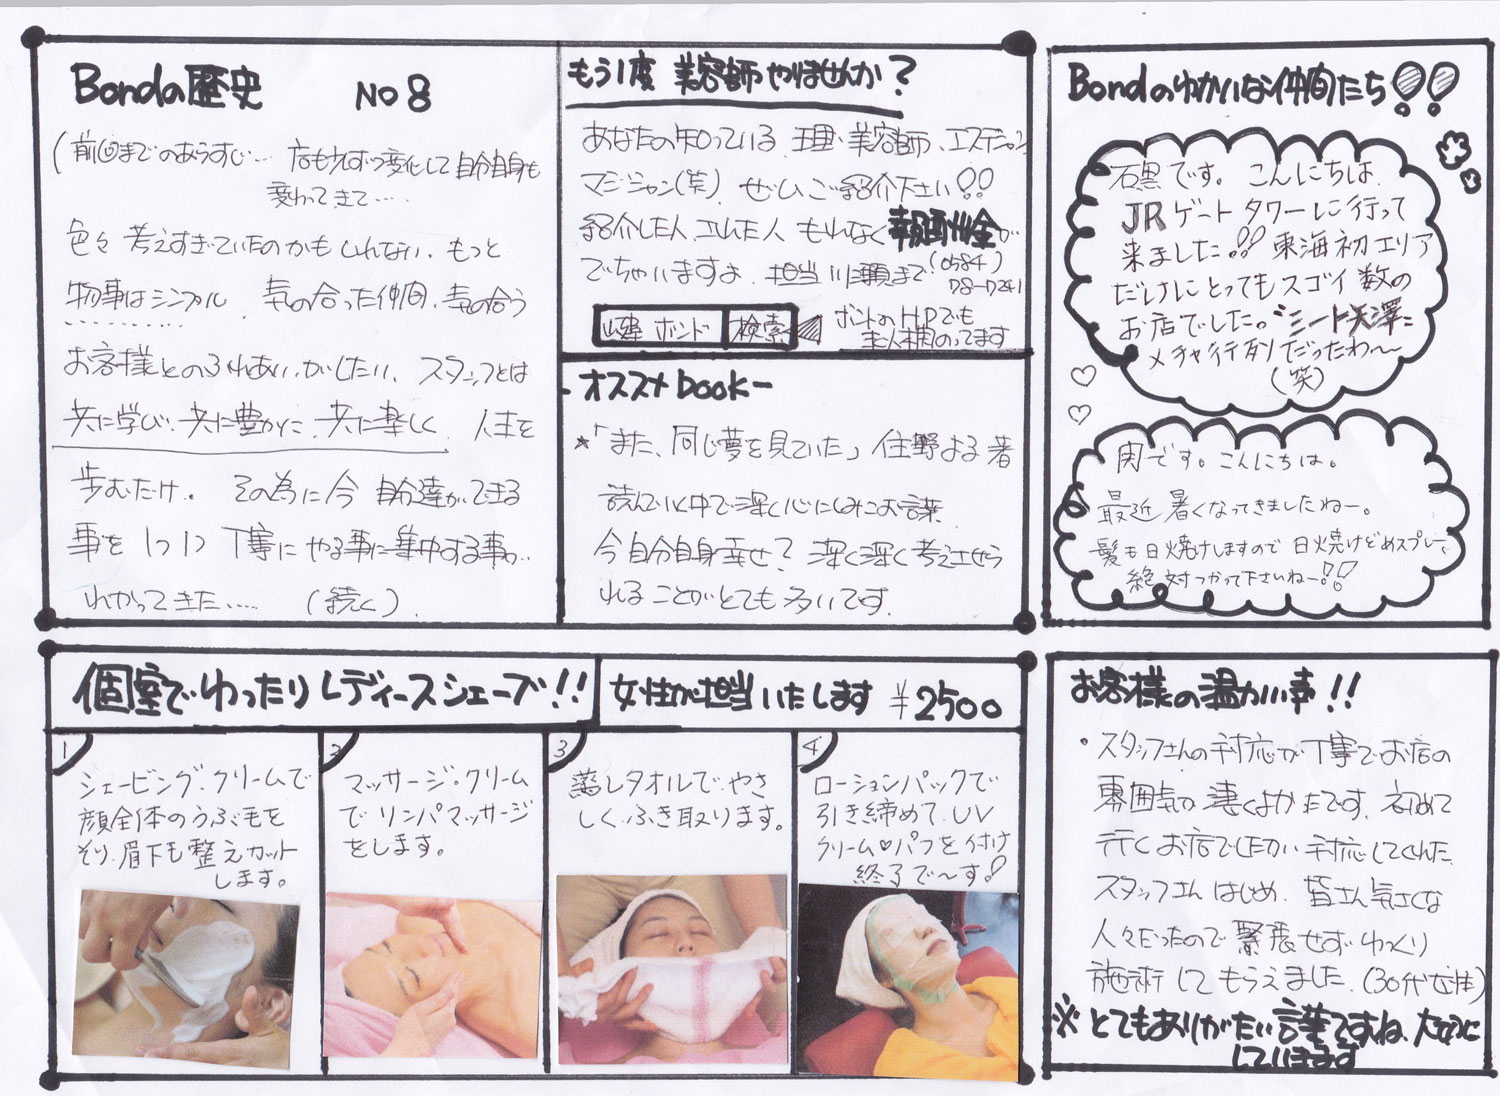 Bondの歴史 NO8
(前回までのあらすじ… 店も少しずつ変化して自分自身も
変わってきて….
色々 考えすぎていたのかもしれない. もっと
物事はシンプル 気の合った仲間、気の合う
お客様とのふれあいがしたい、スタッフとは
共に学び、共に豊かに、共に楽しく 人生を
歩むだけ. その為に今 自分達ができる
事を 1つ1つ 丁寧に やる事に集中する事が…
わかってきた….. (続く)
もう1度 美容師やりませんか?
あなたの知っている 理・美容師、エステ
マジシャン(笑) ぜひご紹介下さい!!
紹介した人、された人 もれなく報酬金が
でちゃいますよ. 担当 まで(0584)
78-7241
ボンド 検索
ボンドのHPでも
求人 のってます
-オススメbook-
*「また、同じ夢を見ていた」住野よる著
読んでいく中で深く心にしみこむ言葉
今自分自身幸せ? 深く深く考えさせら
れることがとても多いです.
Bondのゆかいな仲間たち!!
石黒です。こんにちは
JRゲートタワーに行って
来ました!! 東海初エリア
だけにとってもスゴイ数の
お店でしたの
メチャ行列だったわ～
(笑)
関です。こんにちは。
最近暑くなってきましたねー。
髪も日焼けしますので 日焼けどめスプレーを
絶対つかって下さいねー!!
個室でゆったりレディースシェーブ!! 女性が担当いたします ¥2500
1
シェービング.クリームで
顔全体のうぶ毛を
そり、眉下も整えカット
します。
2
マッサージ.クリーム
で リンパマッサージ
をします。
3
蒸しタオルで、やさ
しく.ふき取ります。
4
ローションパックで
引き締めて.UV
クリーム♡パフを付け
終了で～す!
お客様の温かい事!!
・スタッフさんの対応が丁寧でお店の
雰囲気が凄くよかったです。初めて
行くお店でしたが 対応してくれた
スタッフさんはじめ、皆さん気さくな
人々だったので緊張せずゆっくり
施術してもらえました.(30代女性)
※とてもありがたい言葉ですね、大切に
しています